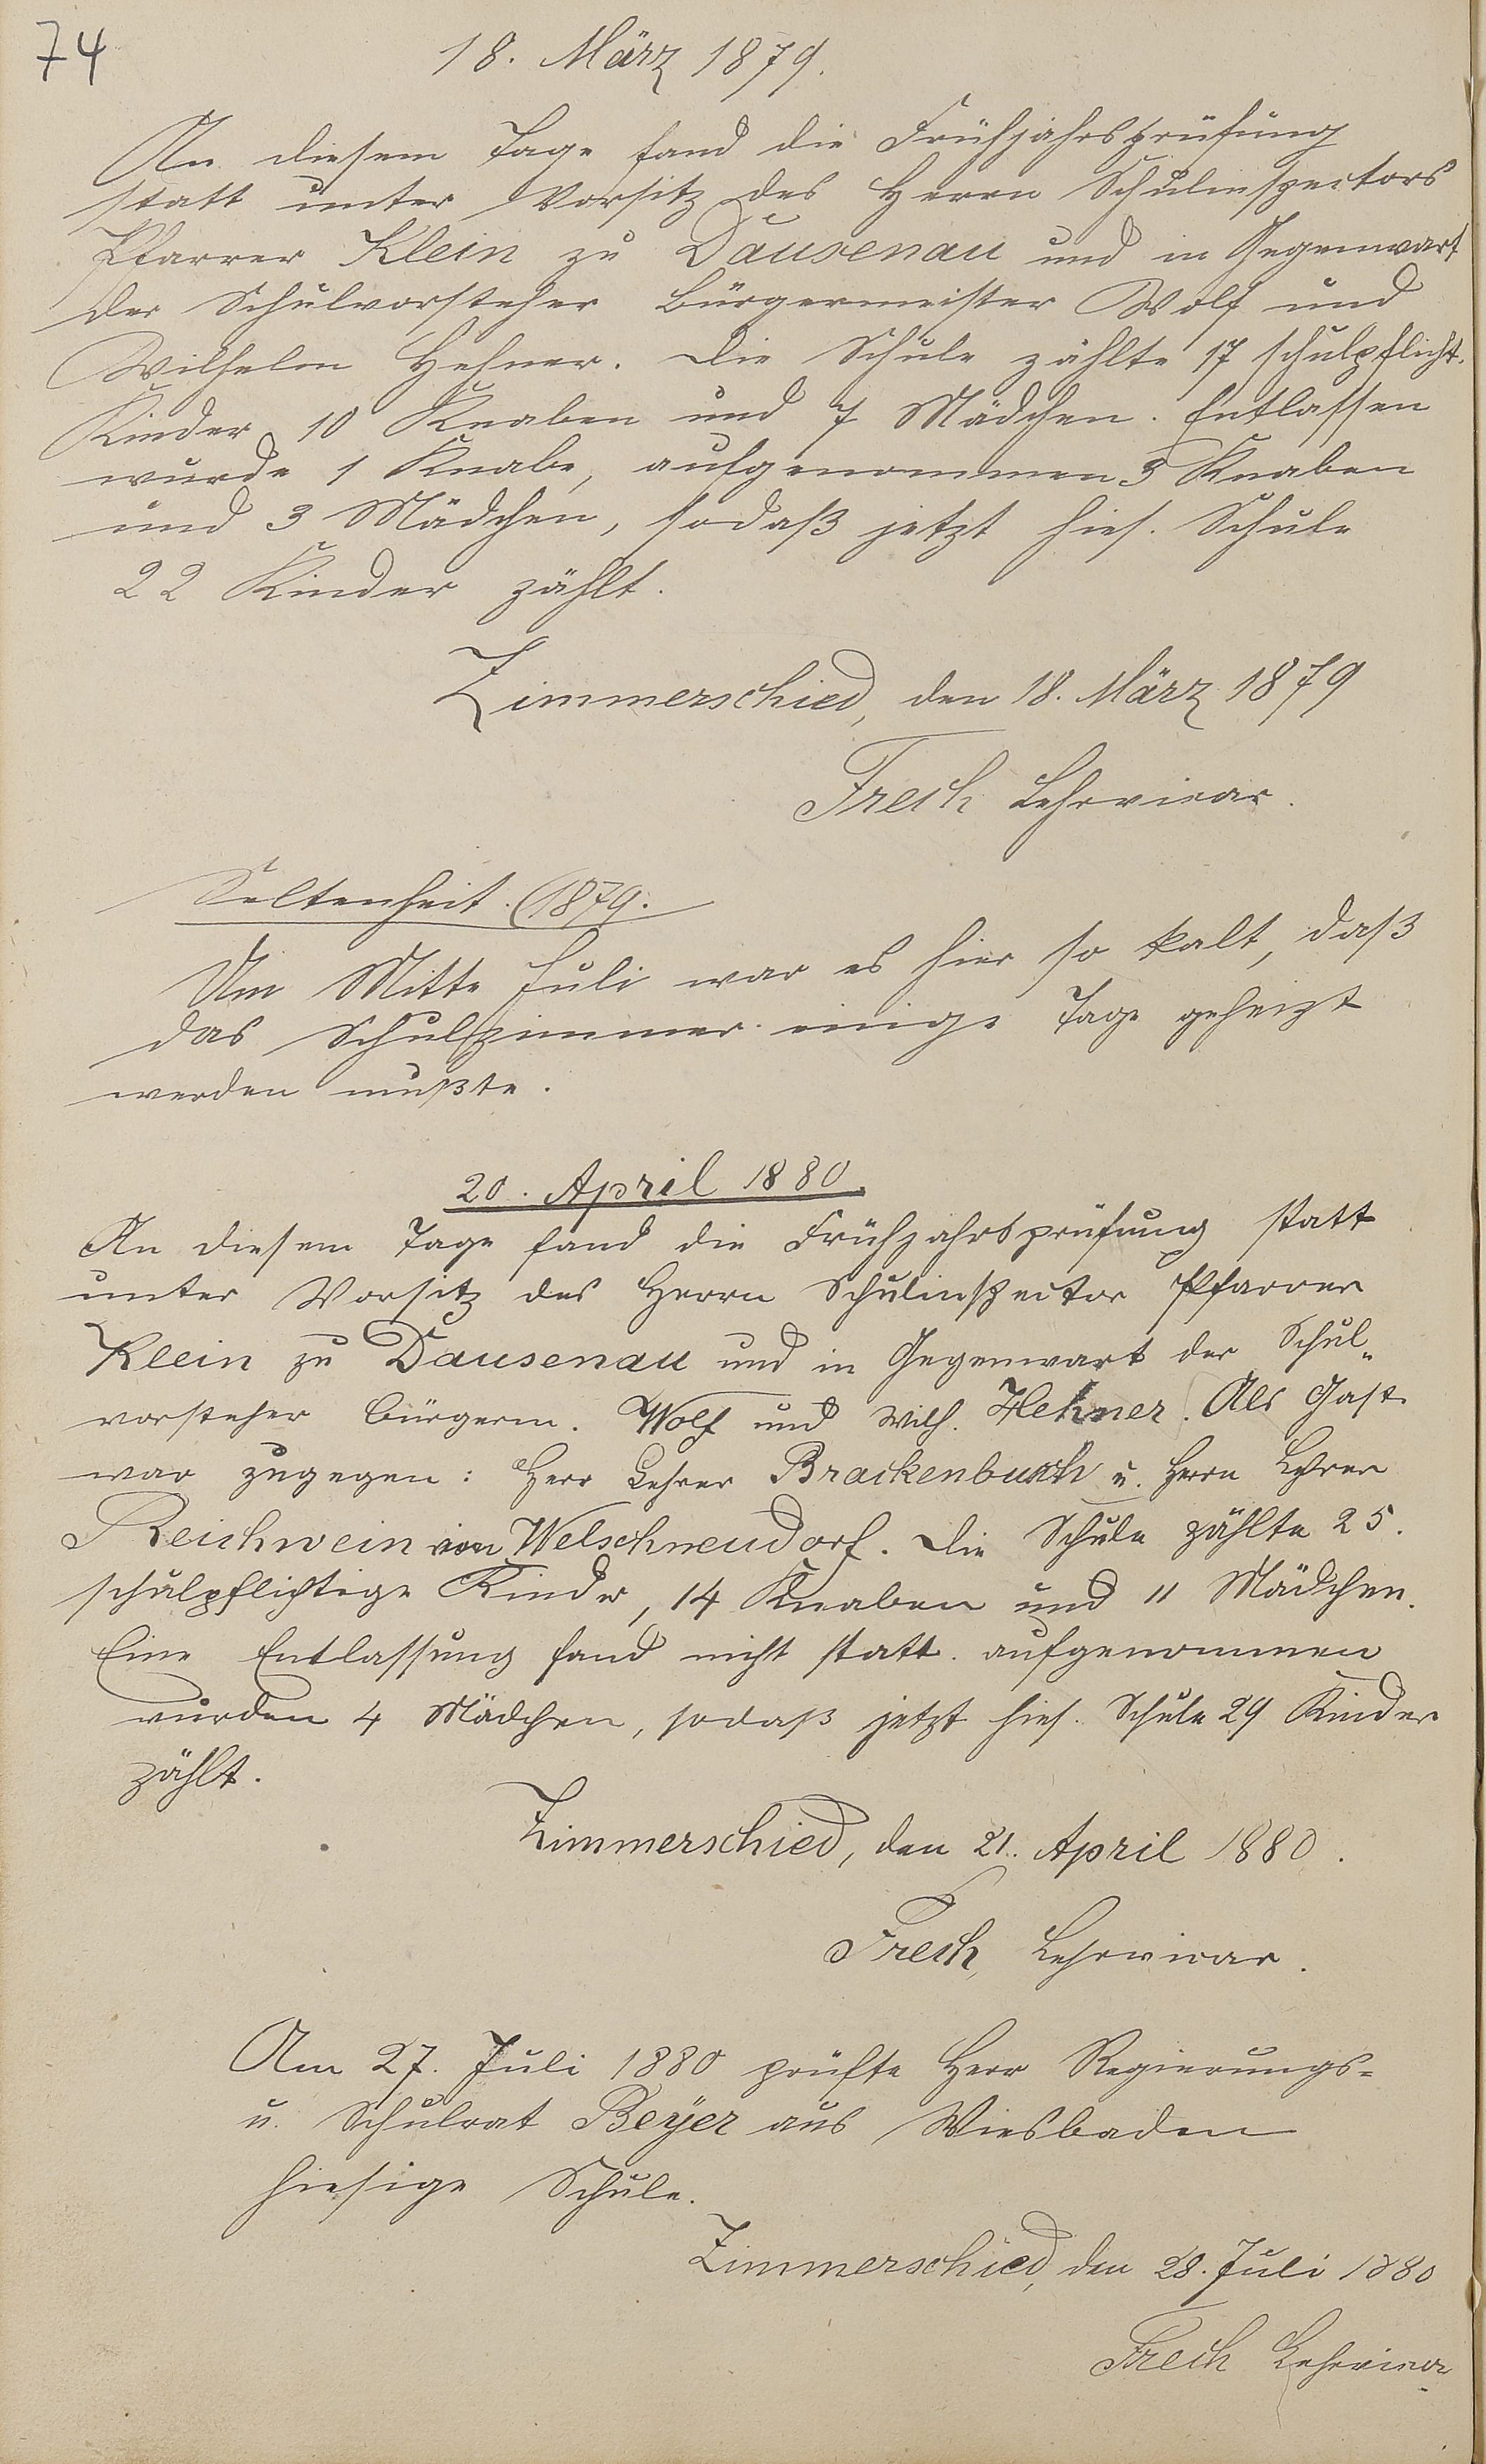 74
18. März 1879.
An diesem Tage fand die Frühjahrsprüfung
statt unter Vorsitz des Herrn Schulinspectors
Pfarrer Klein zu Dausenau und in Gegenwart
der Schulvorsteher Bürgermeister Wolf und
Wilhelm Hehner. Die Schule zählte 17 schulpflicht.
Kinder 10 Knaben und 7 Mädchen. Entlassen
wurde 1 Knabe, aufgenommen 3 Knaben
und 3 Mädchen, sodaß jetzt hies. Schule
22 Kinder zählt.
Zimmerschied, den 18. März 1879
Frech Lehrvicar.
Seltenheit. (1879.
Um Mitte Juli war es hier so kalt, daß
das Schulzimmer einige Tage geheizt
werden mußte.
20. April 1880.
An diesem Tage fand die Frühjahrsprüfung statt
unter Vorsitz des Herrn Schulinspector Pfarrer
Klein zu Dausenau und in Gegenwart der Schul-
vorsteher Bürgerm. Wolf und Wilh. Hehner. Als Gast
war zugegen: Herr Lehrer Brackenbusch u. Herrn Lehrer
Reichwein von Welschneudorf. Die Schule zählte 25.
schulpflichtige Kinder, 14 Knaben und 11 Mädchen.
Eine Entlassung fand nicht statt. aufgenommen
wurden 4 Mädchen, sodaß jetzt hies. Schule 29 Kinder
zählt.
Zimmerschied, den 21. April 1880.
Frech, Lehrvicar.
Am 27. Juli 1880 prüfte Herr Regierungs-
u. Schulrat Beyer aus Wiesbaden
hiesige Schule.
Zimmerschied, den 28. Juli 1880
Frech Lehrvicar